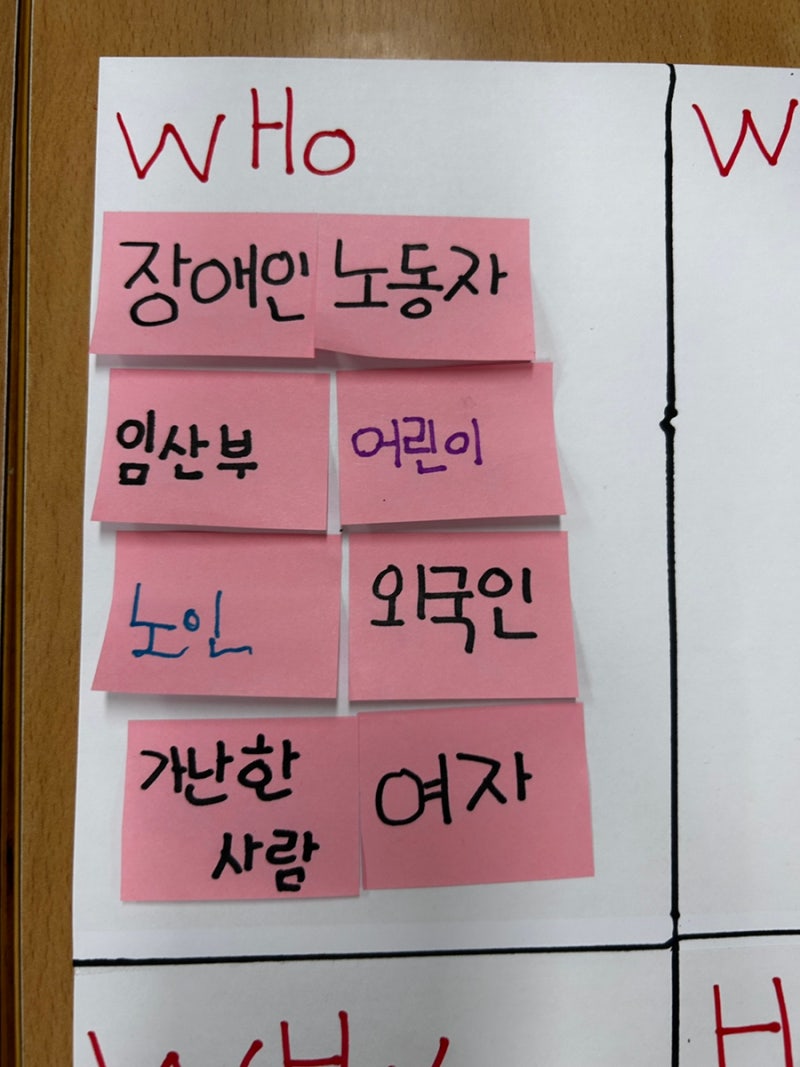 WHO
W
장애인 노동자
임산부 어린이
노인 외국인
가난한
사람
여자
WHY
H